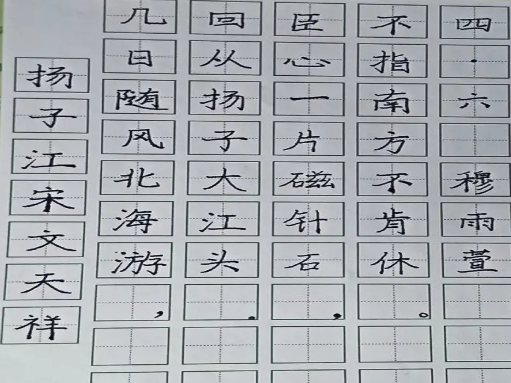 扬子江宋文天祥
几日随风北海游，
回从扬子大江头。
臣心一片磁针石，
不指南方不肯休。
四·六 穆雨萱